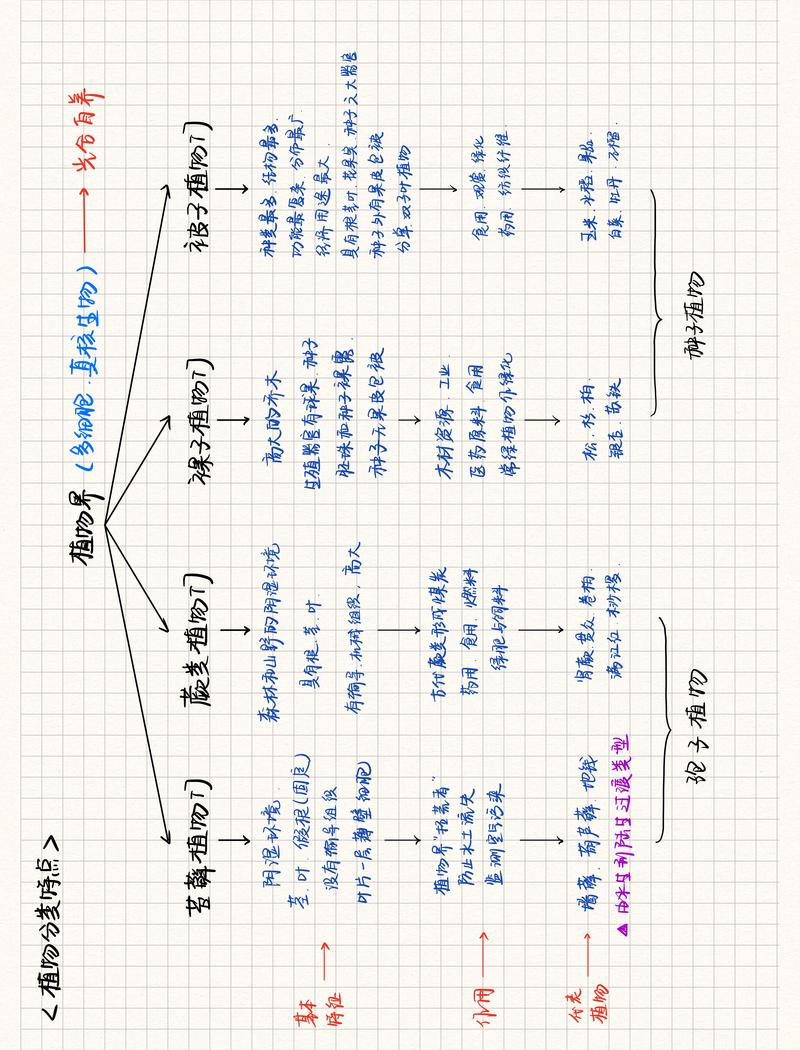 <植物分类特点>
植物界（多细胞.真核生物）→光合自养
苔藓植物门
蕨类植物门
裸子植物门
被子植物门
基本
特征
阴湿环境
茎.叶.假根(固定)
没有输导组织
叶片一层薄壁细胞
森林和山野的阴湿环境
具有根.茎.叶
有输导.机械组织,高大
高大的乔木
生殖器官有球果.种子
胚珠和种子裸露.
种子无果皮包被
种类最多.结构最多.
功能最复杂.分布最广
经济用途最大.
具有根茎叶.花果实.种子六大器官
种子外有果皮包被
分单.双子叶植物
作用
植物界"拓荒者"
防止水土流失
监测空气污染
古代蕨类形成煤炭
药用.食用.燃料
绿肥与饲料
木材资源.工业.
医药原料.食用
常绿植物作绿化
食用.观赏.绿化
药用.纺织纤维.
代表
植物
墙藓.葫芦藓.地钱
▲由水生到陆生过渡类型
肾蕨.贯众.卷柏.
满江红.桫椤.
松.杉.柏.
银杏.苏铁
玉米.水稻.
白菜.牡丹.石榴.
孢子植物
种子植物